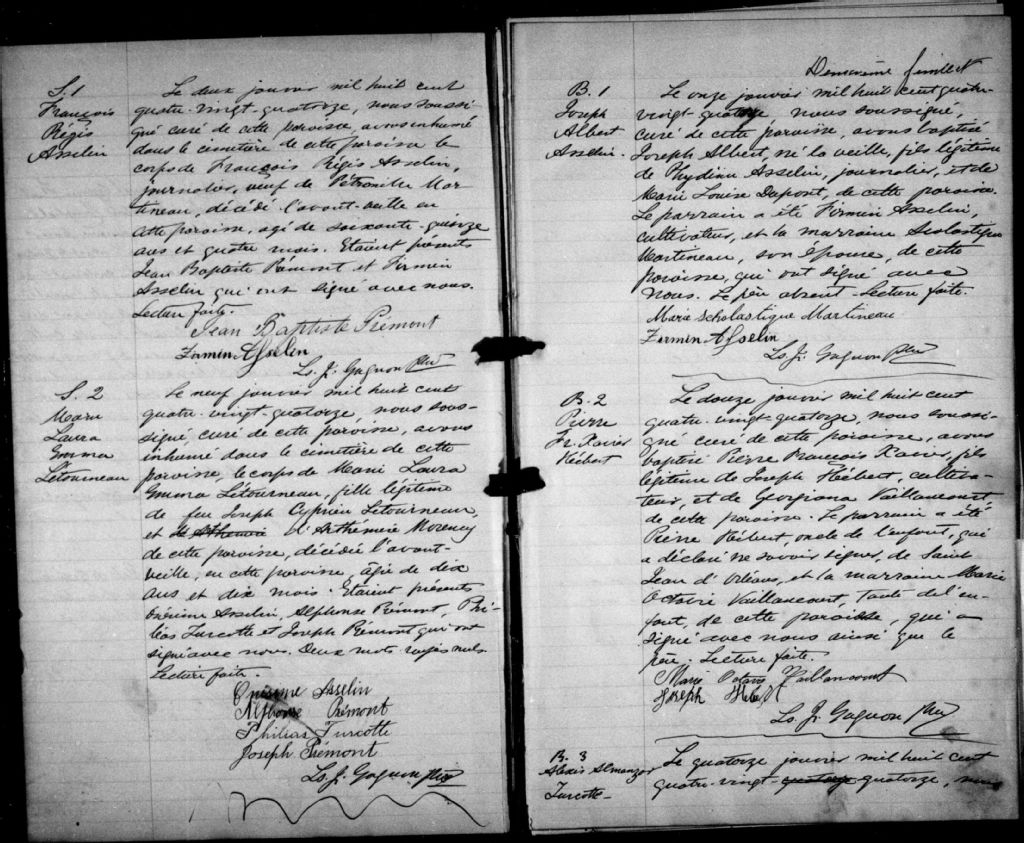 S. 1
François
Régis
Asselin
Le deux janvier mil huit cent
quatre-vingt-quatorze, nous soussi-
gné curé de cette paroisse, avons inhumé
dans le cimetière de cette paroisse le
corps de François Régis Asselin,
journalier, veuf de Pétronille Mar-
tineau, décédé l'avant-veille en
cette paroisse, agé de soixante-quinze
ans et quatre mois. Etaient présents
Jean Baptiste Prémont et Firmin
Asselin qui ont signé avec nous.
Lecture faite.
Jean Baptiste Premont
Firmin Asselin
Ls. J. Gagnon Ptre
S. 2
Marie
Laura
Emma
Létourneau
Le neuf janvier mil huit cent
quatre-vingt-quatorze, nous sous-
signé, curé de cette paroisse, avons
inhumé dans le cimetière de cette
paroisse, le corps de Marie Laura
Emma Létourneau, fille légitime
de feu Joseph Cyprien Létourneau,
et d'Arthémise Morency
de cette paroisse, décédée l'avant-
veille, en cette paroisse, âgée de dix
ans et dix mois. Etaient présents
Onésime Asselin, Alphonse Prémont, Phi-
léas Turcotte et Joseph Prémont qui ont
signé avec nous. Deux mots rayés nuls.
Lecture faite.
Onésime Asselin
Alphonse Prémont
Philias Turcotte
Joseph Prémont
Ls. J. Gagnon Ptre
Deuxième feuillet
B. 1
Joseph
Albert
Asselin.
Le onze janvier mil huit cent quatre-
vingt-quatorze, nous soussigné,
curé de cette paroisse, avons baptisé
Joseph Albert, né la veille, fils légitime
de Phydime Asselin, journalier, et de
Marie Louise Dupont, de cette paroisse.
Le parrain a été Firmin Asselin,
cultivateur, et la marraine Scholastique
Martineau, son épouse, de cette
paroisse, qui ont signé avec
nous. Le père absent. Lecture faite.
Marie Scholastique Martineau
Firmin Asselin
Ls. J. Gagnon Ptre
B. 2
Pierre
Fr. Xavier
Hébert
Le douze janvier mil huit cent
quatre-vingt-quatorze, nous soussi-
gné curé de cette paroisse, avons
baptisé Pierre François Xavier, fils
légitime de Joseph Hébert, cultiva-
teur, et de Georgiana Vaillancourt,
de cette paroisse. Le parrain a été
Pierre Hébert, oncle de l'enfant, qui
a déclaré ne savoir signer, de Saint
Jean d'Orléans, et la marraine Marie
Octavie Vaillancourt, tante de l'en-
fant, de cette paroisse, qui a
signé avec nous ainsi que le
père. Lecture faite.
Marie Octavie Vaillancourt
Joseph Hébert
Ls. J. Gagnon Ptre
B. 3
Alexis Almanzar
Turcotte
Le quatorze janvier mil huit cent
quatre-vingt-quatorze quatorze, nous